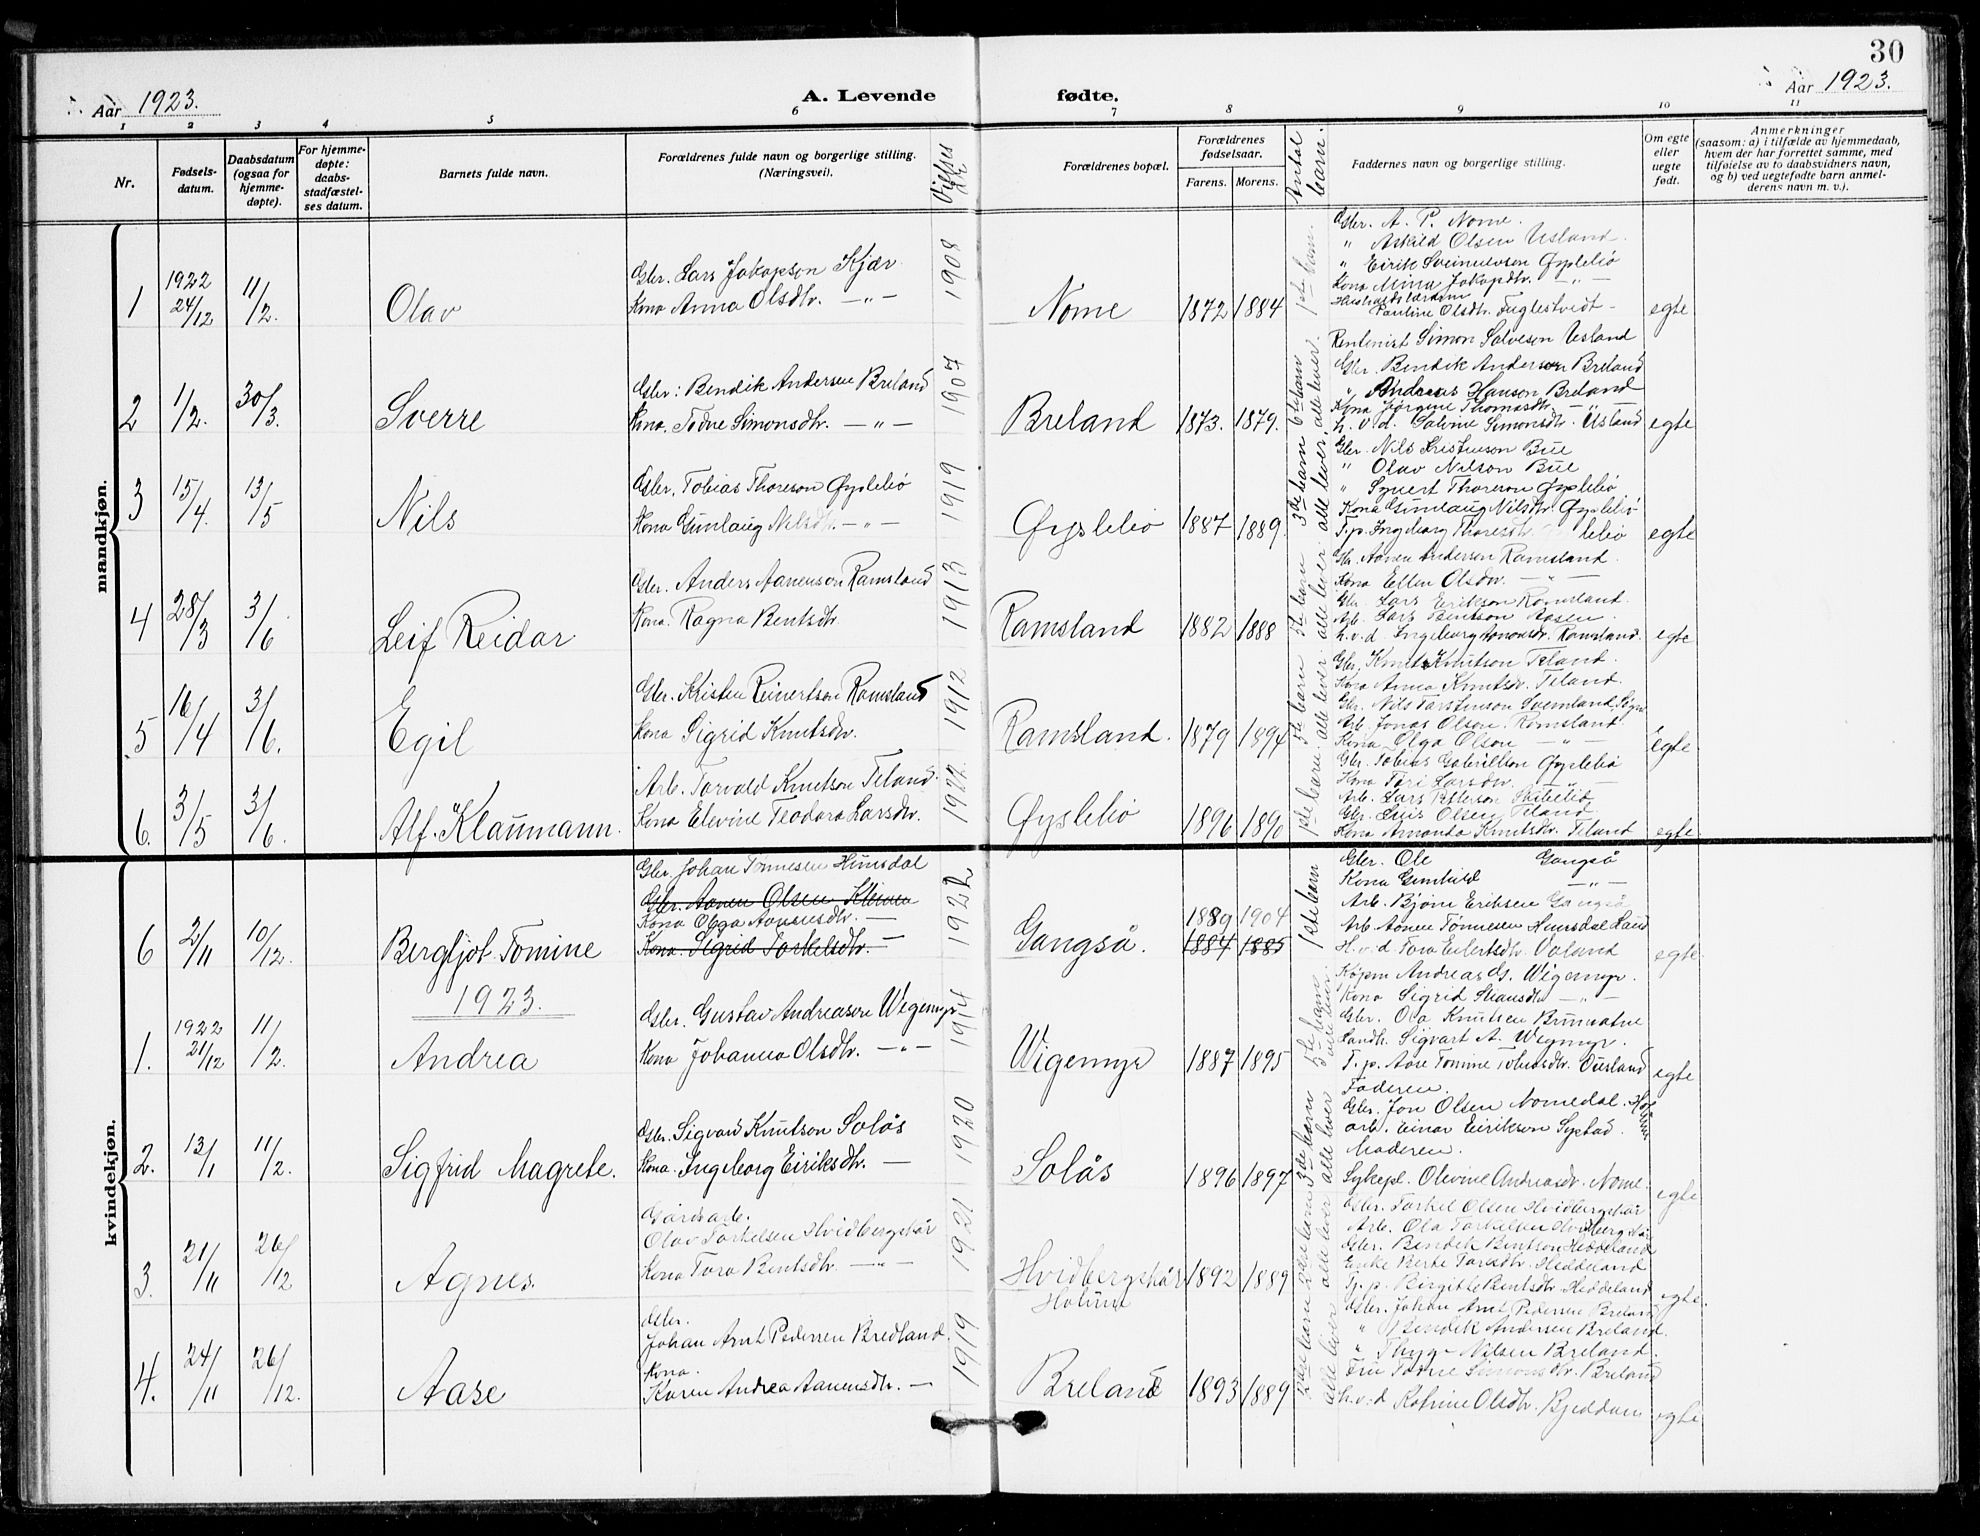 30
Aar 1923.
A. Levende fødte.
Aar 1923.
1 2 3 4 5 6 7 8 9 10 11
Nr.
Fødsels-
datum.
Daabsdatum
(ogsaa for
hjemme-
døpte).
For hjemme-
døpte:
daabs-
stadfæstel-
ses datum.
Barnets fulde navn.
Forældrenes fulde navn og borgerlige stilling.
(Næringsvei).
Forældrenes bopæl.
Forældrenes
fødselsaar.
Farens. Morens.
Antal
barn.
Faddernes navn og borgerlige stilling.
Om egte
eller
uegte
født.
Anmerkninger
(saasom: a) i tilfælde av hjemmedaab,
hvem der har forrettet samme, med
tilføielse av to daabsvidners navn,
og b) ved uegtefødte barn anmel-
derens navn m. v.).
mandkjøn.
1 1922 24/12 11/2. Olav
Gbr. Lars Jakopson Kjær
Kona Anna Olsdtr. —"—
1908
Nome 1872 1884 1ste barn.
Gbr. A. P. Nome.
" Askild Olsen Usland.
" Eirik Sveinulvson Øyslebø
Kona Mina Jakopdtr. —"—
Pauline Olsdtr. Fuglestvedt
egte
2 1/2. 30/3. Sverre
Gbr: Bendik Andersen Breland
Kona. Todne Simonsdtr. —"—
1907
Breland 1873. 1879. 6te barn alle lever.
Rentenist Simon Salveson Usland
Gbr. Bendik Anderson Breland
" Andreas Hanson Breland
Kona Jørgine Thomasdtr. —
h. v. d. Salvine Simonsdtr. Usland
egte
3 15/4. 13/5 Nils
Gbr. Tobias Thoreson Øyslebø
Kona Gunlaug Nilsdtr. —"—
1919
Øyslebø 1887 1889. 3de barn alle lever
Gbr. Nils Kristenson Bue
" Olav Nilson Bue
" Syvert Thoreson Øyslebø
Kona Gunlaug Nilsdtr. Øyslebø
T. p. Ingeborg Thoresdtr. lebø
egte
4 28/3 3/6 Leif Reidar
Gbr. Anders Aanenson Ramsland
Kona. Ragna Bentsdtr.
1913
Ramsland 1882 1888 barn alle lever.
Gbr. Aanen Anderson Ramsland.
Kona Ellen Olsdtr. —"—
Gbr. Lars Erikson Ramsland.
Arb. Lars Bentson Aasen.
h. v. d Ingeborg Aanonsdr. Ramsland.
egte
5 16/4 3/6. Egil
Gbr. Kristen Reinertson Ramsland
Kona Sigrid Knutsdtr.
1912
Ramsland. 1879 1894 5te barn. alle lever.
Gbr. Knut Knutson Teland.
Kona Anna Knutsdtr. Teland.
Arb. Jonas Olson. Ramsland
Kona Olga Olson —"—
egte
6. 3/5 3/6. Alf. Klaumann.
Arb. Torvald Knutson Teland.
Kona Elevine Teodora Larsdtr.
1922.
Øyslebø 1896 1890 1ste barn.
Gbr. Tobias Gabrielson Øyslebø
Kona Tori Larsdtr —"—
Arb. Lars Petterson
Gbr. Olsen Teland
Kona Amanda Knutsdtr. Teland
egte
kvindekjøn.
6 2/11 10/12. Bergljot Tomine
Gbr. Johan Tønnesen Hunsdal
Gbr. Aanen Olsen Kleiven
Kona Olga Aanensdtr. —
Kona. Sigrid Torkelsdtr. —
1922
Gangså. 1889 1904
1884 1885
1ste barn
Gbr. Ole Gangså
Kona Gunhild —"—
Arb. Bjørn Eriksen Gangså
Arb Aanen Tønnesen Hunsdal Laud
H. v. d Tora Eilertsdtr. Valand
egte.
1923.
1. 1922 21/12 11/2. Andrea
Gbr. Gustav Andreasen Wigemyr
Kona Johanna Olsdtr. —"—
1914
Wigemyr 1887 1895 5te barn
Kjøpm Andreas G. Wigemyr.
Kona Sigrid Stiansdtr —"—
Gbr. Ola Knutsen Brunvatne
Landh. Sigvart A. Wigmyr.
T. p. Aase Tomine Ousland
egte
2. 13/1 11/2. Sigfrid Magrete.
Gbr. Sigvard Knutson Solås
Kona. Ingeborg Eiriksdtr. —
1920
Solås 1896 1897 3de barn alle lever
Faderen.
Gbr. Jon Olsen Nomedal.
arb. Einar Eirikson Systad.
Moderen.
Sykepl. Olevine Andreasdr. Nome.
egte
3. 21/11 26/12 Agnes.
Gårdsarb.
Olav Torkelsen Hvidbergskår
Kona Tora Bentsdtr. —"—
1921
Hvidbergskår
Holum
1892 1889 2det barn alle lever
Gbr. Torkel Olsen Hvidbergskår
Arb. Ola Torkelsen Hvidbergskår
Gbr. Bendik Bentson Heddeland
Enke Berte Torsdtr. Heddeland
Tj. p. Birgitte Bentsdtr Heddeland
egte.
4. 24/11 26/12. Aase
Gbr.
Johan Arnt Pedersen Bredland.
Kona.
Karen Andrea Aanensdtr. —
1919
Breland 1893 1889 2det barn alle lever
Gbr. Johan Arnt Pedersen Breland
" Bendik Andersen Breland.
" Thygv Nilsen Breland.
Fru Todne Simonsdtr. Breland
h. v. d Katrine Olsdtr.
egte